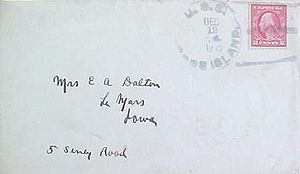 U.S.S.
DEC
12
ISLAND
2 CENTS 2
Mrs E. A Dalton
Le Mars
Iowa
5 Seney Road